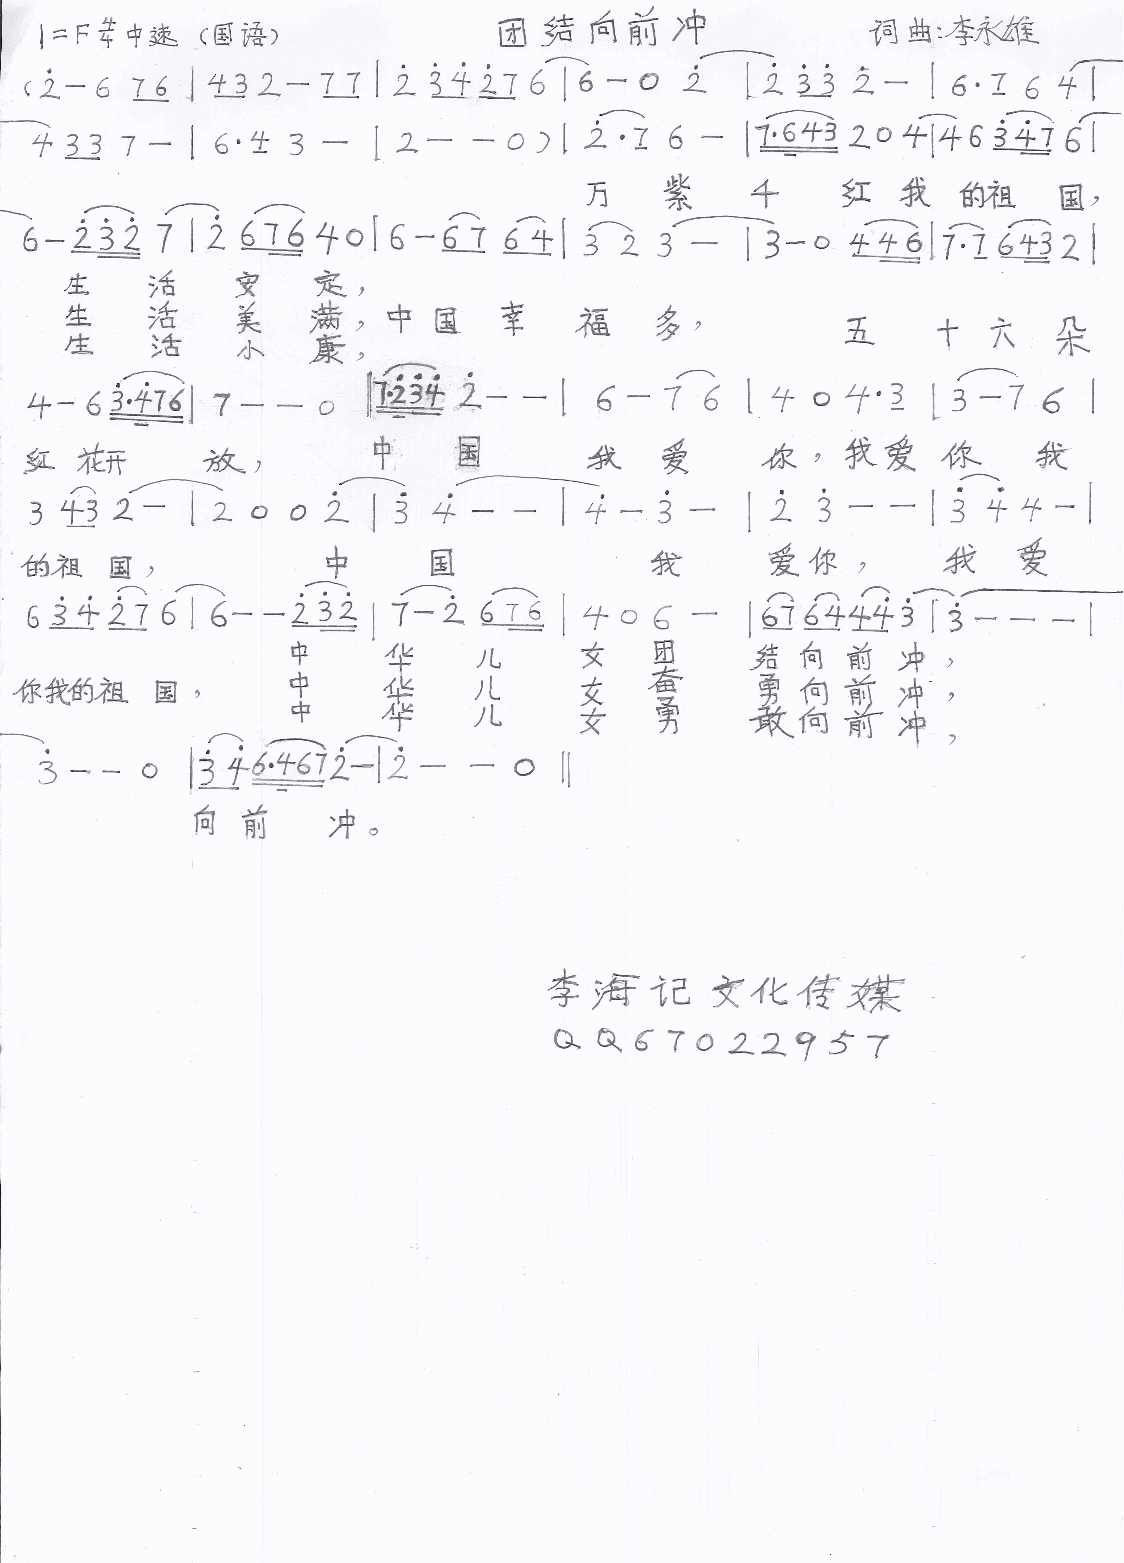 1=F 4/4 中速（国语） 团结向前冲 词曲:李永雄
(2̇-6 76|432-77|2̇ 3̇4̇2̇76|6-02̇|2̇3̇3̇2̇-|6·764|
4337-|6·43-|2--0)|2̇·76-|7·643204|463̇4̇76|
万紫千红我的祖国，
6-2̇3̇2̇7|2̇67640|6-6764|323-|3-0446|7·76432|
生活安定，
生活美满，中国幸福多，五十六朵
生活小康，
4-63̇·4̇76|7--0‖7·2̇3̇4̇2̇--|6-76|404·3|3-76|
红花开放，中国我爱你，我爱你我
3432-|2002̇|3̇4̇--|4̇-3̇-|2̇3̇--|3̇4̇4-|
的祖国，中国我爱你，我爱
63̇4̇2̇76|6--2̇3̇2̇|7-2̇676|406-|67644̇4̇3̇|3̇---|
中华儿女团结向前冲，
你我的祖国，中华儿女奋勇向前冲，
中华儿女勇敢向前冲，
3̇--0|3̇4̇6·4672̇-|2̇--0‖
向前冲。
李海记文化传媒
QQ67022957